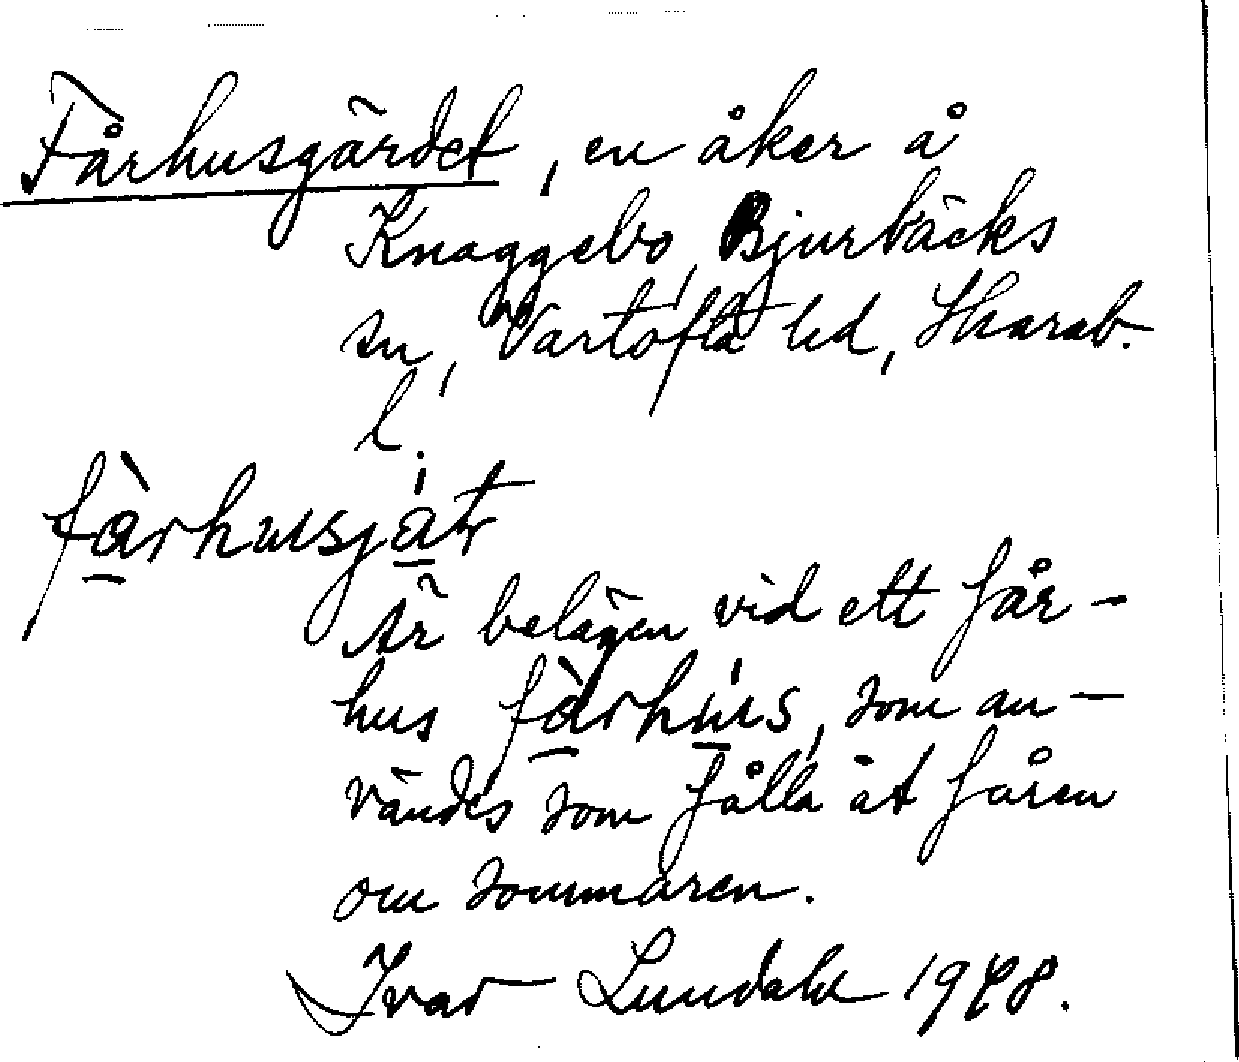 Fårhusgärdet, en åker å
Knaggebo, Bjurbäcks
sn, Vartofta hd, Skarab.
l.
fàrhusjätr
Är belägen vid ett får-
hus fàrhus, som an-
vändes som fålla åt fåren
om sommaren.
Ivar Lundahl 1948.